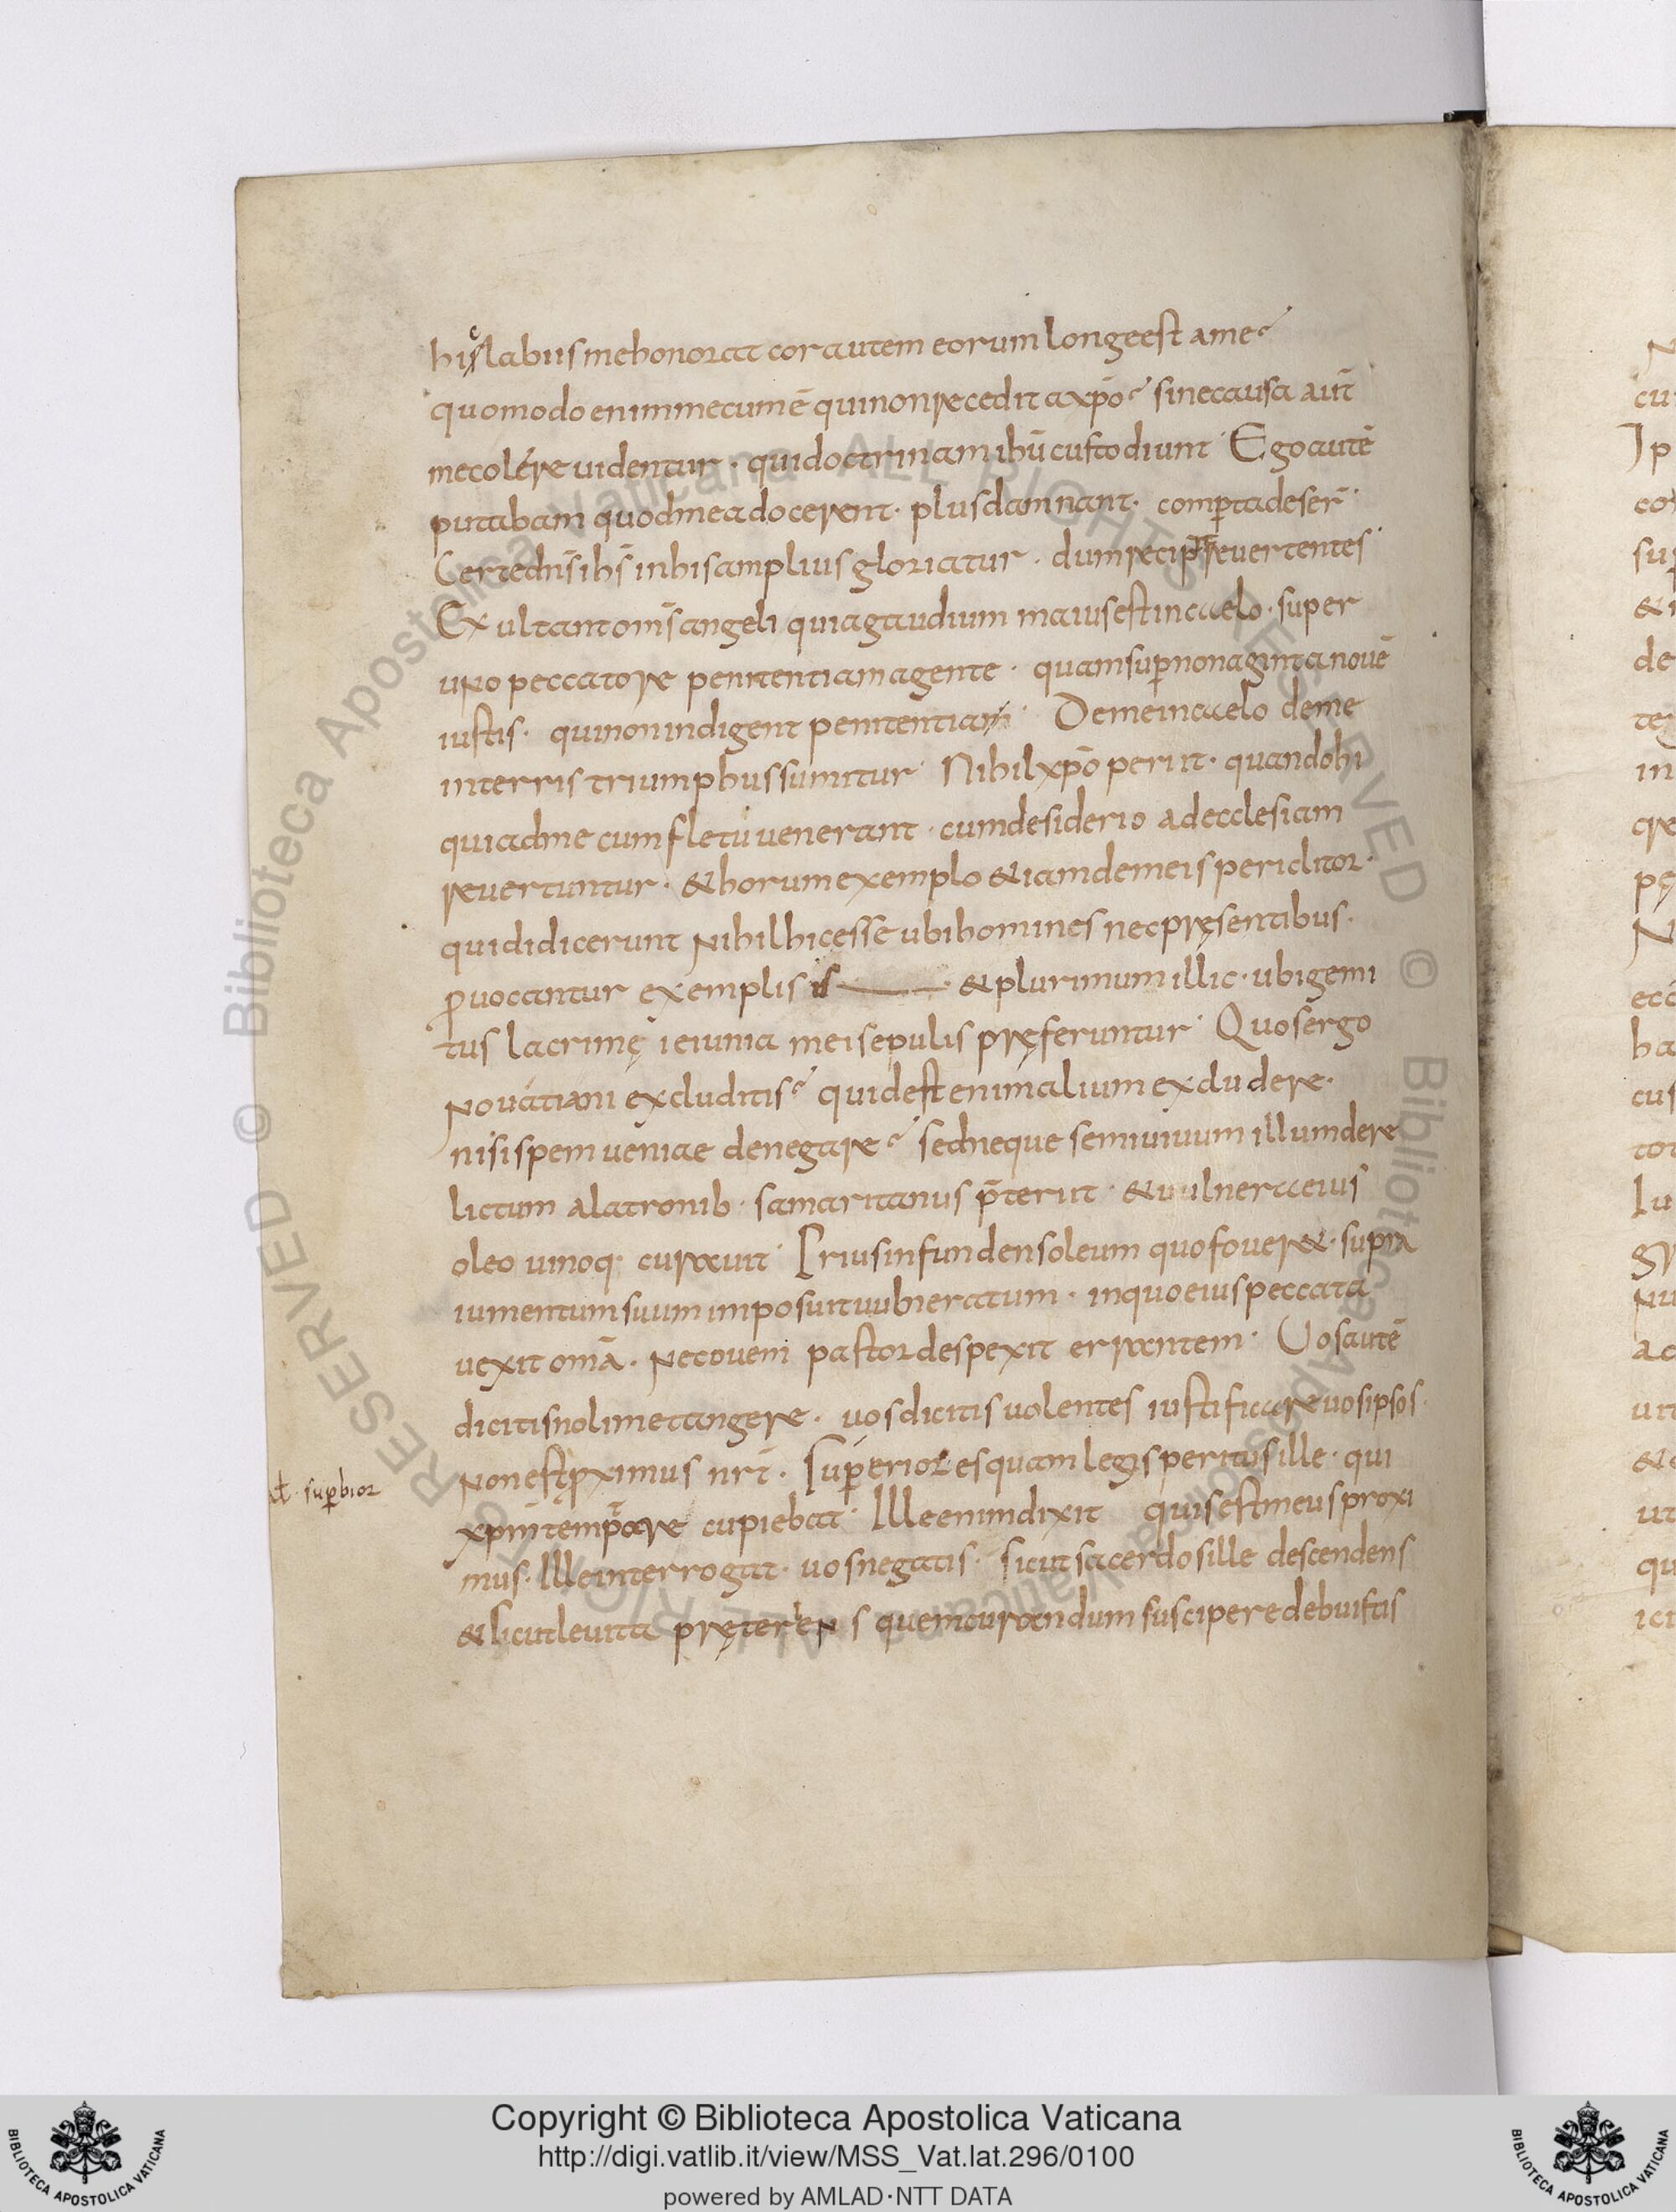 hic labiis me honorat cor autem eorum longe est a me
quomodo enim mecum ē qui non recedit a xp̄o sine causa aut̄
me colere uidentur · qui doctrinam ihū custodiunt · Ego autē
putabam quod mea docerent · plus damnant · comptadeser̄
Certe dn̄s ihs̄ in his amplius gloriatur · dum recipit reuertentes
Exultant om̄s angeli quia gaudium maius est in caelo · super
uno peccatore penitentiam agente · quam sup nonaginta nouē
iustis · qui non indigent penitentiam · De me in caelo de me
in terris triumphus sumitur · Nihil xp̄o periit · quando hi
qui ad me cum fletu uenerant · cum desiderio ad ecclesiam
reuertuntur · & horum exemplo &iam de meis periclitor ·
qui didicerunt nihil hic esse ubi homines nec pręsentibus ·
puocantur exemplis · & plurimum illic · ubi gemi
tus lacrimę ieiunia meis epulis pręferuntur · Quos ergo
Nouatiani excluditis quid est enim alium excludere ·
nisi spem ueniae denegare sed neque semiuiuum illum dere
lictum a latronib · samaritanus p̄teriit · & uulnera eius
oleo uinoq · curauit · Prius infundens oleum quo fouer& · supra
iumentum suum imposuit uulneratum · in quo eius peccata
uexit om̄a · Nec ouem pastor despexit errantem · Uos autē
dicitis noli me tangere · uos dicitis uolentes iustificare uos ipsos ·
Non est pximus nr̄i · Superior es quam legis peritus ille · qui
uł · superbior
xpm̄ temptare cupiebat · Ille enim dixit quis est meus proxi
mus · Ille interrogat · uos negatis · sicut sacerdos ille descendens
& sicut leuita pręteriens quem curandum suscipere debuistis
Copyright © Biblioteca Apostolica Vaticana
http://digi.vatlib.it/view/MSS_Vat.lat.296/0100
powered by AMLAD·NTT DATA